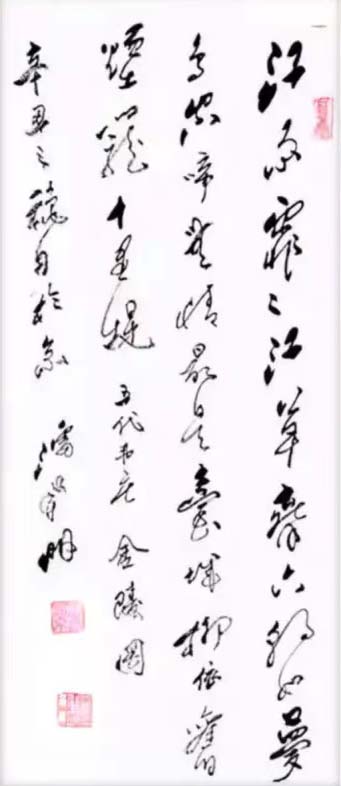 江雨霏〻江草齊六朝如夢
鳥空啼無情最是臺城柳依舊
煙籠十里堤 五代韦庄 金陵圖
辛丑之龝月於京 潘